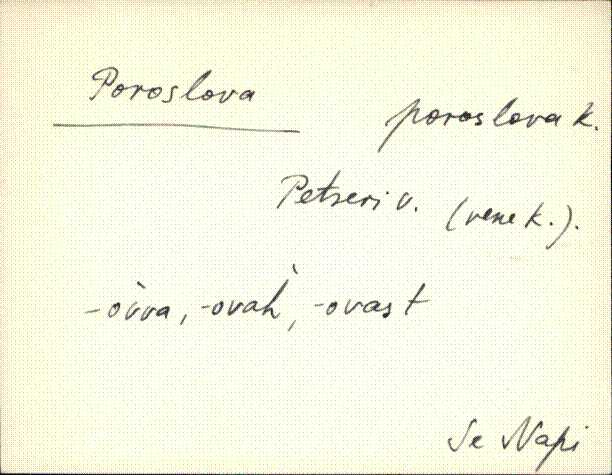 Poroslova
poroslova k.
Petseri v. (vene k.).
-òvva, -ovah', -ovast
Se Napi